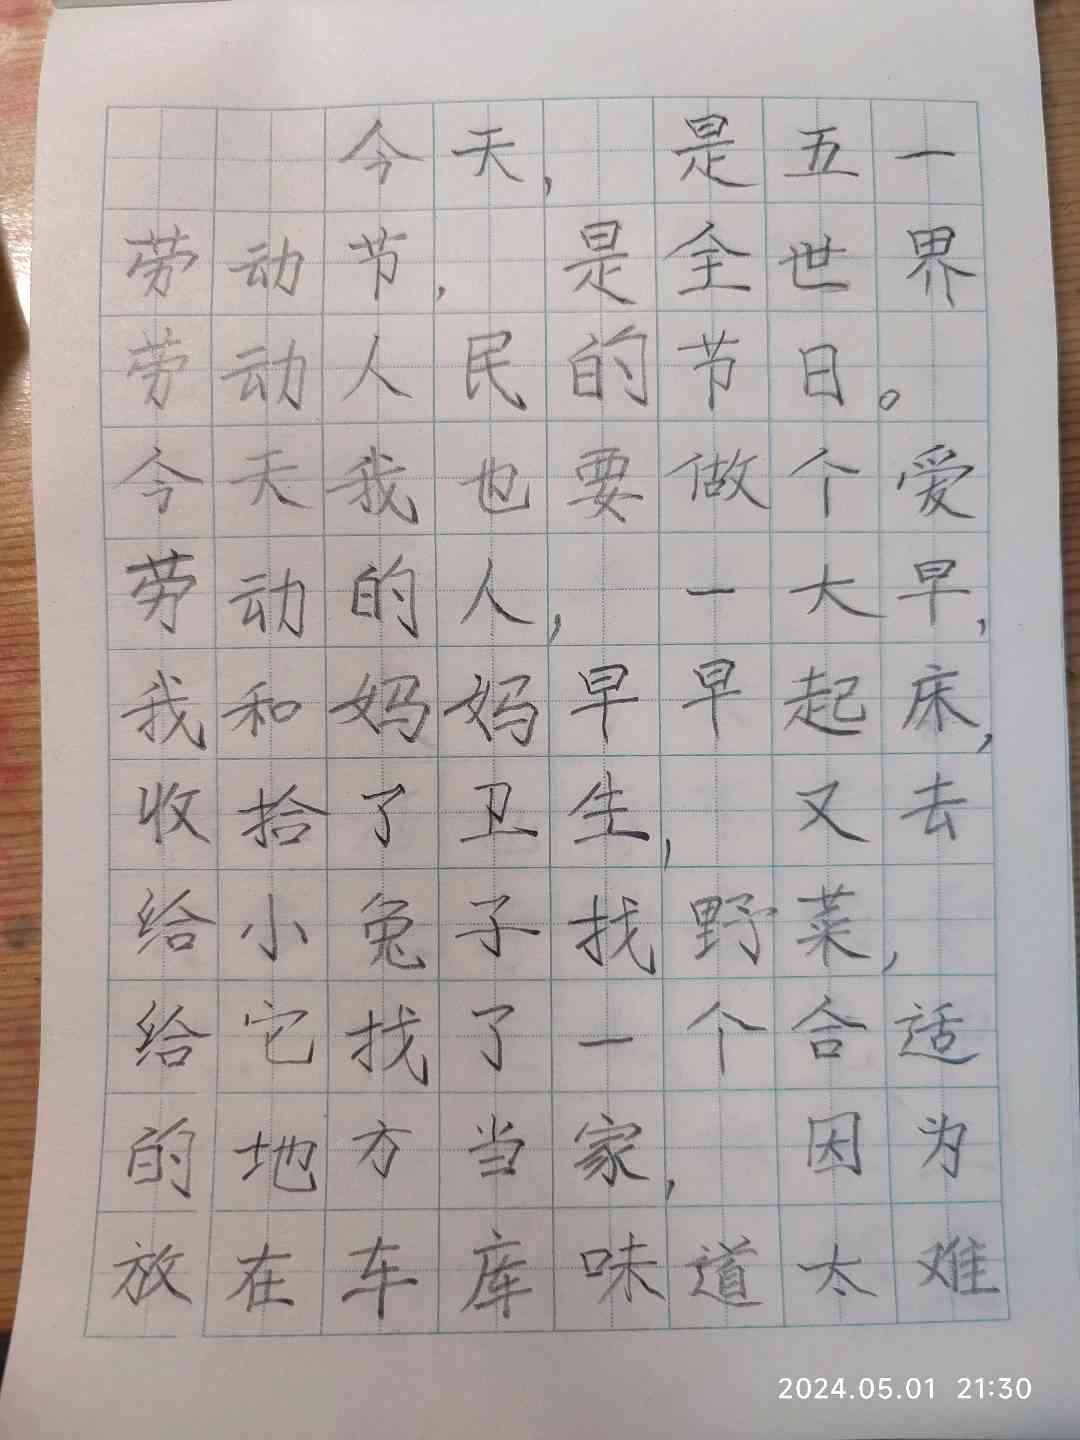 今天，是五一
劳动节，是全世界
劳动人民的节日。
今天我也要做个爱
劳动的人，一大早，
我和妈妈早早起床，
收拾了卫生，又去
给小兔子找野菜，
给它找了一个合适
的地方当家，因为
放在车库味道太难
2024.05.01 21:30